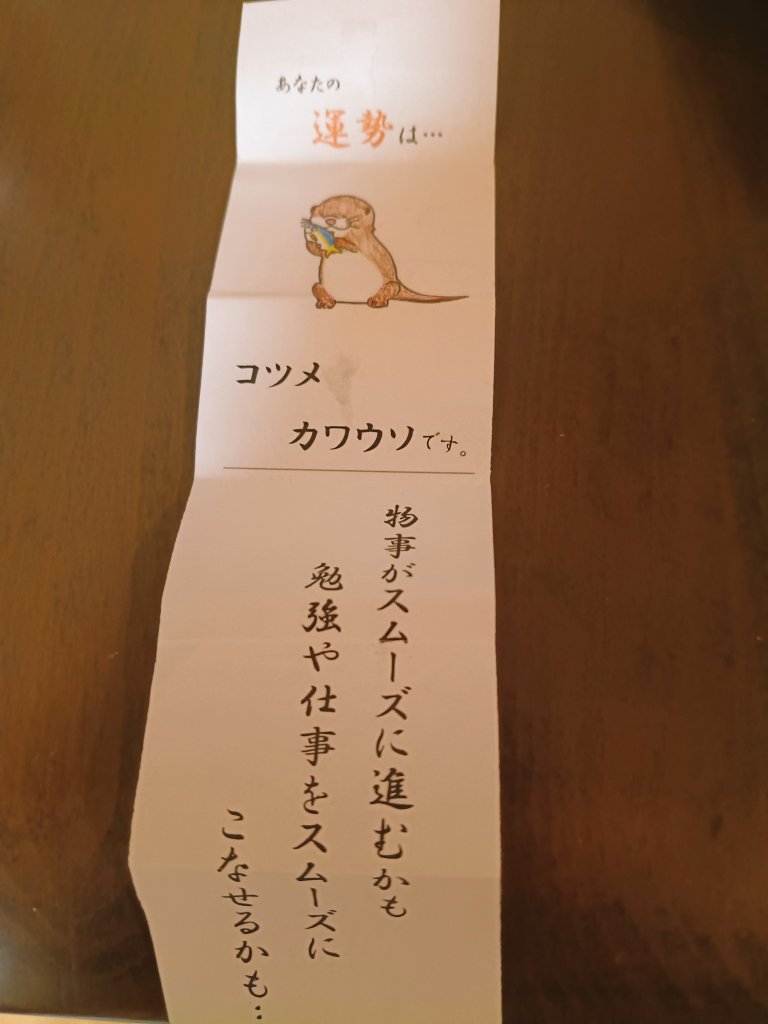 あなたの
運勢は…
コツメ
カワウソです。
物事がスムーズに進むかも
勉強や仕事をスムーズに
こなせるかも…